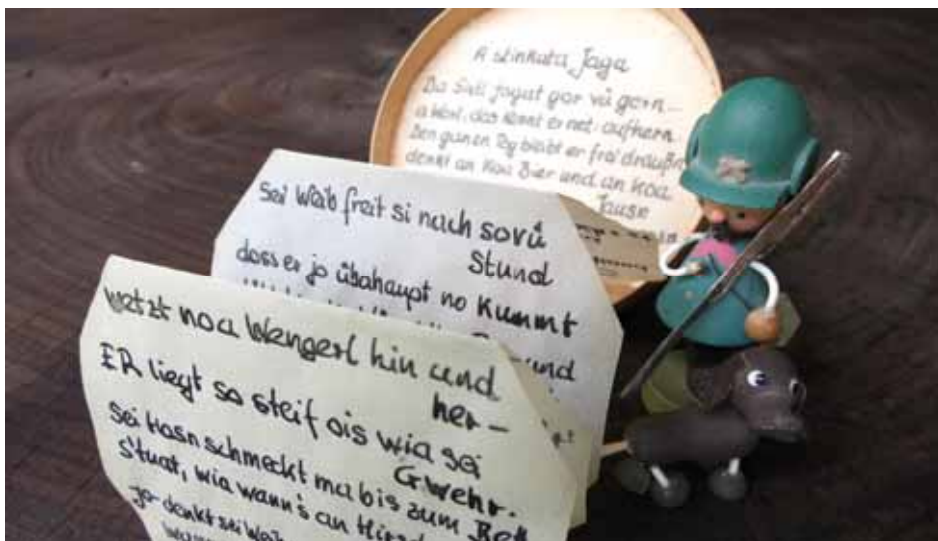 A stinkata Jaga
Da Sidl jagat gor vü gern –
a Wort, das kennt er net: aufhern
Den gunzn Tog bleibt er frei draußn
denkt an koa Bier und an koa
Jause
Sei Weib freit si nach sovü
Stund
doss er jo übahaupt no Kummt
und
wetzt noa Wengerl hin und
her –
ER liegt so steif ois wia sei
Gwehr.
Sei Hosn schmeckt ma bis zum Bett
Stuat, wia wann's an Hirsch
jo denkt sei Weib